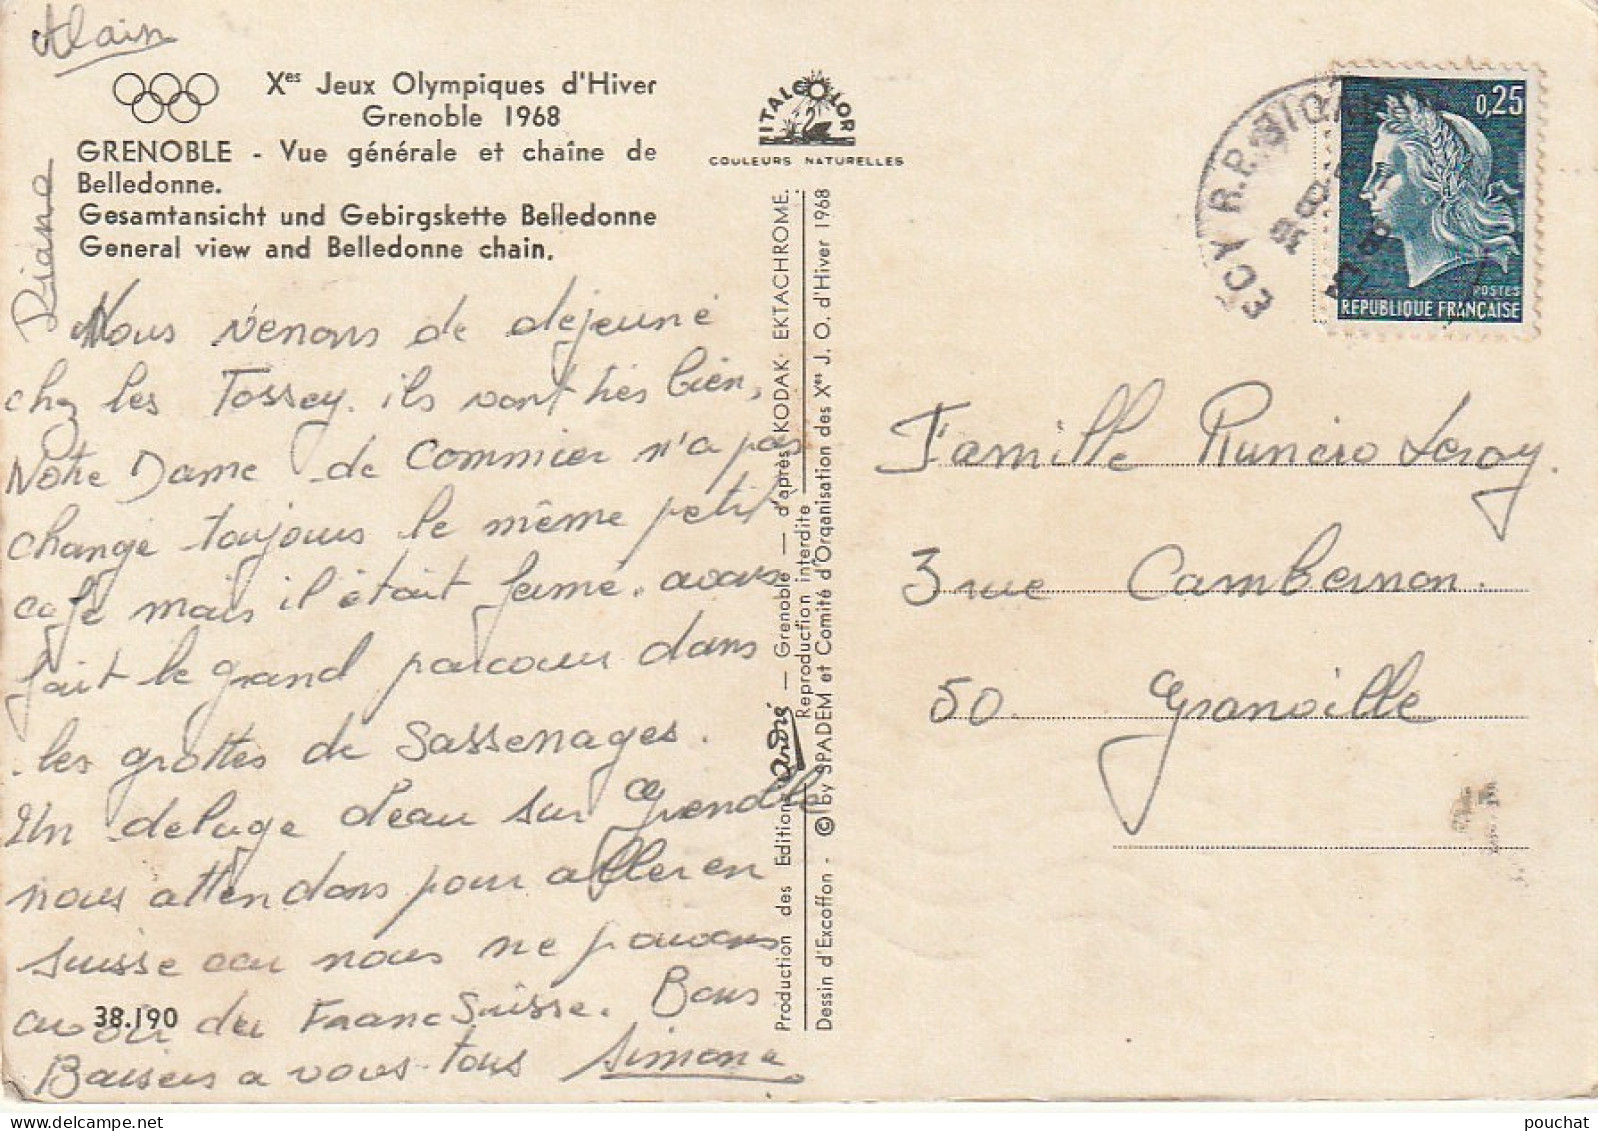 Alain
Diana
Xes Jeux Olympiques d'Hiver
Grenoble 1968
GRENOBLE - Vue générale et chaîne de
Belledonne.
Gesamtansicht und Gebirgskette Belledonne
General view and Belledonne chain.
Nous venons de dejeuné
chez les Tossey. ils vont très bien,
Notre Dame de Commier n'a pas
change toujours le même petit
café mais il était fermé. avons
fait le grand parcours dans
les grottes de Sassenages.
Un deluge d'eau sur Grenoble
nous attendons pour aller en
suisse car nous ne pouvons
avoir du Franc Suisse. Bons
Baisers a vous tous Simone
38.190
ITALCOLOR
COULEURS NATURELLES
Production des Editions André — Grenoble — d'après KODAK EKTACHROME.
Reproduction interdite
Dessin d'Excoffon - © by SPADEM et Comité d'Organisation des Xes J. O. d'Hiver 1968
0,25
POSTES
REPUBLIQUE FRANÇAISE
Famille Runero Leroy.
3 rue Cambernon.
50. Granville
pouchat